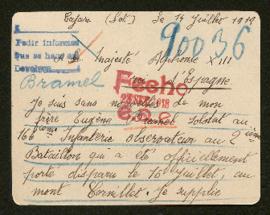 Cajarc (Lot) le 11 Juillet 1918
90036
A
Pedir informes
Que se haga
Devolver
Sa Majesté Alphonse XIII
Roi d'Espagne
Bramel
Fecho
918
Je suis sans nouvelles de mon
frère Eugène Bramel soldat au
166 Infanterie observateur au 2ième
Bataillon qui a été officiellement
porté disparu le 10 Juillet, au
mont Cornillet. Je supplie